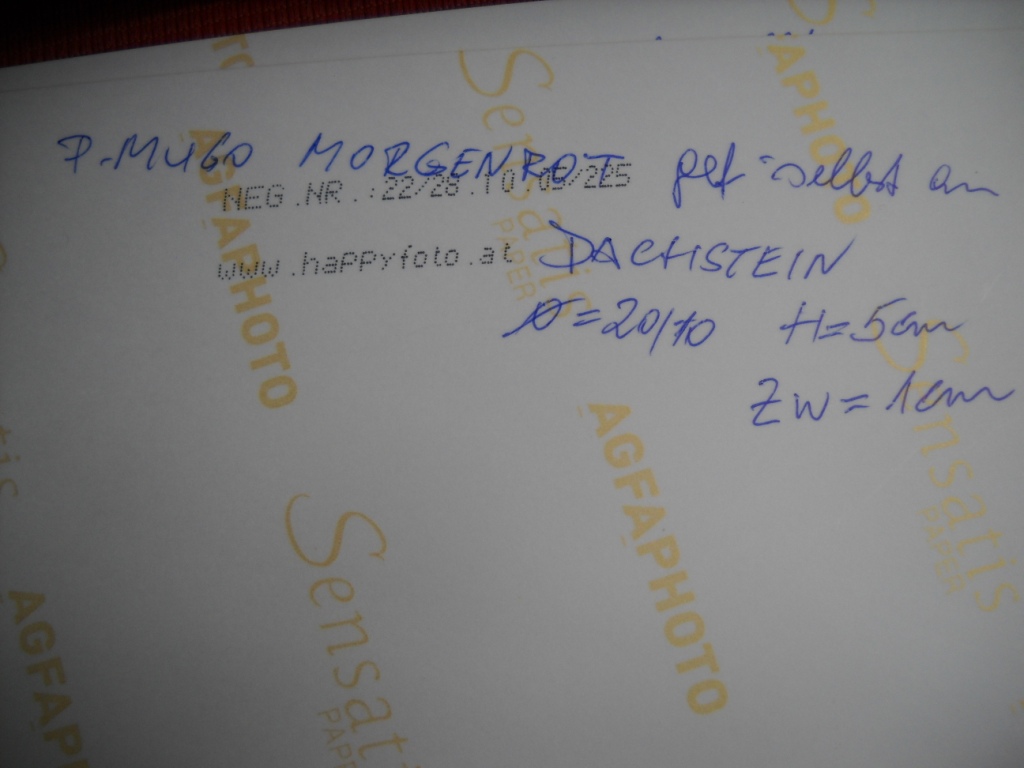 P. MUGO MORGENROT gef selbst am
NEG.NR.:22/28 10/05/2ES
www.happyfoto.at DACHSTEIN
Ø=20/10 H=5cm
ZW=1cm
AGFAPHOTO
Sensatis
PAPER
APHOTO
AGFAPHOTO
Sensatis
PAPER
AGFAPHOTO
Sensatis
PAPER
AGFAP